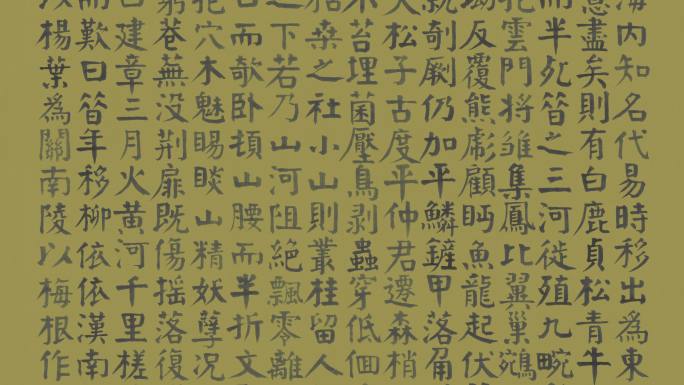 海內知名代易時移出為東
意盡矣則有白鹿貞松青牛
而半死昔之三河徙殖九畹
花雲門將雛集鳳比翼巢鵷
坳反覆熊彪顧眄魚龍起伏
就剞劂仍加平鱗鏟甲落角
大松子古度平仲君遷森梢
苔埋菌壓鳥剝蟲穿低佪
桑之社小山則叢桂留人
之下若乃山河阻絕飄零離
而欹臥頓山腰而半折文
抱穴木魅睗睒山精妖孽況
窮巷蕪没荆扉既傷搖落復
建章三月火黃河千里槎
而歎曰昔年移柳依依漢南
以楊葉為關南陵以梅根作